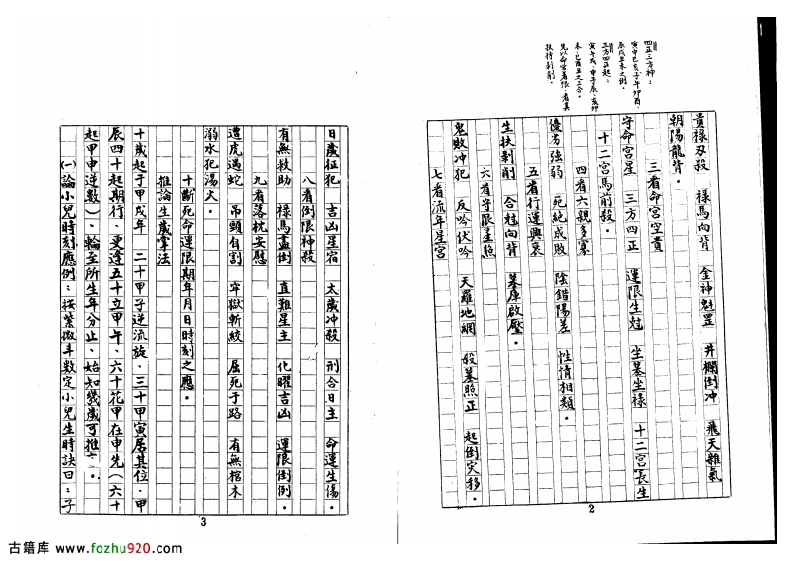 四正三方神：
寅申巳亥子午卯酉．
辰戌丑未之例．
三方四正起：
寅午戌．申子辰．亥卯
未．巳酉丑之三合．
先以命宮看限．看其
扶持剝削．
貴祿刃殺　祿馬向背　金神魁罡　井欄倒冲　飛天雜氣
朝陽龍背．
三看命宮空貴
守命宮星　三方四正　運限生尅　坐墓坐祿　十二宮長生
十二宮馬前殺．
四看六親多寡
優劣強弱　死絶成敗　陰錯陽差　性情相類．
五看行運興衰
生扶剝削　合尅向背　墓庫啟壓．
六看守限星煞
鬼敗冲犯　反吟伏吟　天羅地網　殺墓照正　起倒灾移．
七看流年星宮
2
日歲征犯　吉凶星宿　太歲冲殺　刑合日主　命運生傷．
八看倒限神殺
有無救助　祿馬盡倒　直難星主　化曜吉凶　運限倒例．
九看落枕安慰
遭虎遇蛇　吊頸自割　牢獄斬絞　屈死于路　有無棺木
溺水犯湯火．
十斷死命運限期年月日時刻之應．
推論生歲掌法
十歲起于甲戌年　二十甲子逆流旋．三十甲寅居其位．甲
辰四十起期行．更逢五十立甲午．六十花甲在申先（六十
起甲申逆數）．輪至所生年分止．始知幾歲可推．
㈠論小兒時刻應例：按紫微斗數定小兒生時訣曰：子
3
古籍库 www.fozhu920.com